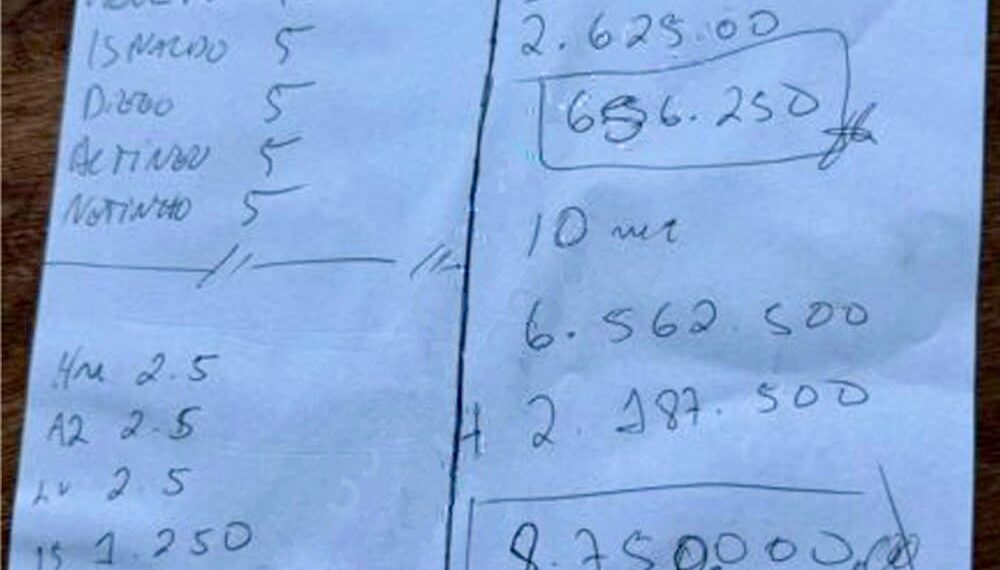 ISNALDO 5
DIEGO 5
ALTINEU 5
NETINHO 5
2.5
A2 2.5
LU 2.5
IS 1.250
2.625.00
656.250
10
6.562.500
+ 2.187.500
8.750.000,00